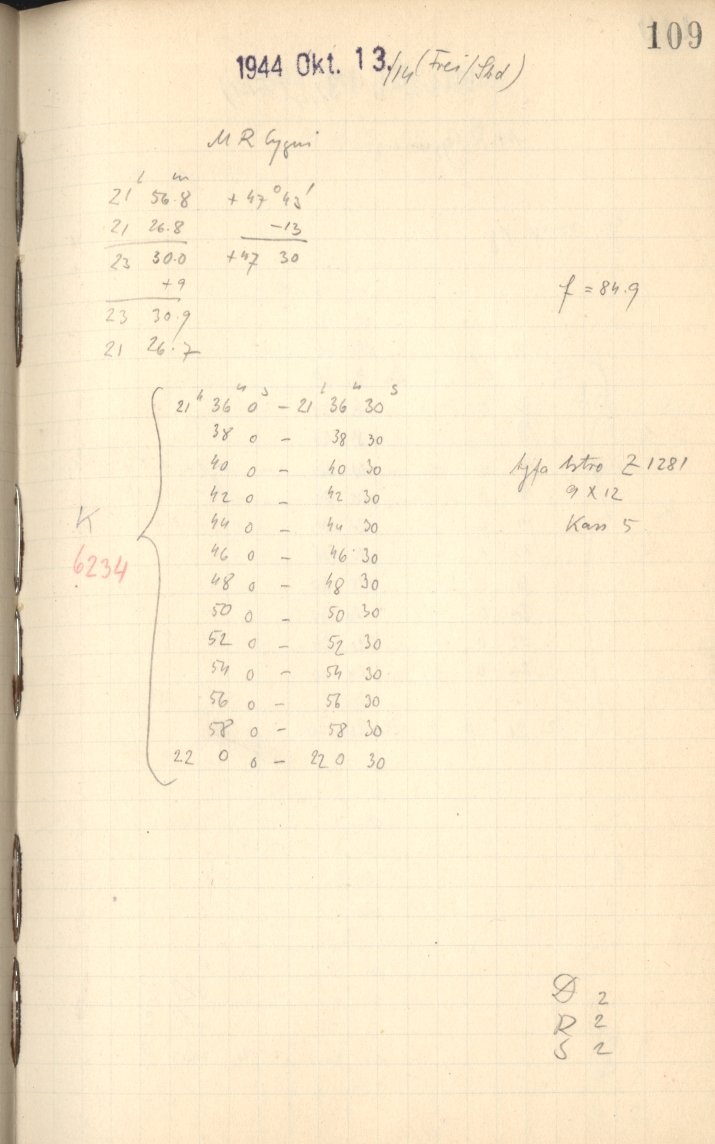 109
1944 Okt. 13./14 (Frei/
MR Cygni
21 h 56.8 m +47° 43'
21 26.8 -13
23 30.0 +47 30
+9
f = 84.9
23 30.9
21 26.7
21 h 36 m 0 s - 21 h 36 m 30 s
38 0 - 38 30
40 0 - 40 30
Agfa Astro Z 1281
42 0 - 42 30
9 X 12
K
44 0 - 44 30
Kass 5
46 0 - 46 30
6234
48 0 - 48 30
50 0 - 50 30
52 0 - 52 30
54 0 - 54 30
56 0 - 56 30
58 0 - 58 30
22 0 0 - 22 0 30
D 2
R 2
S 2